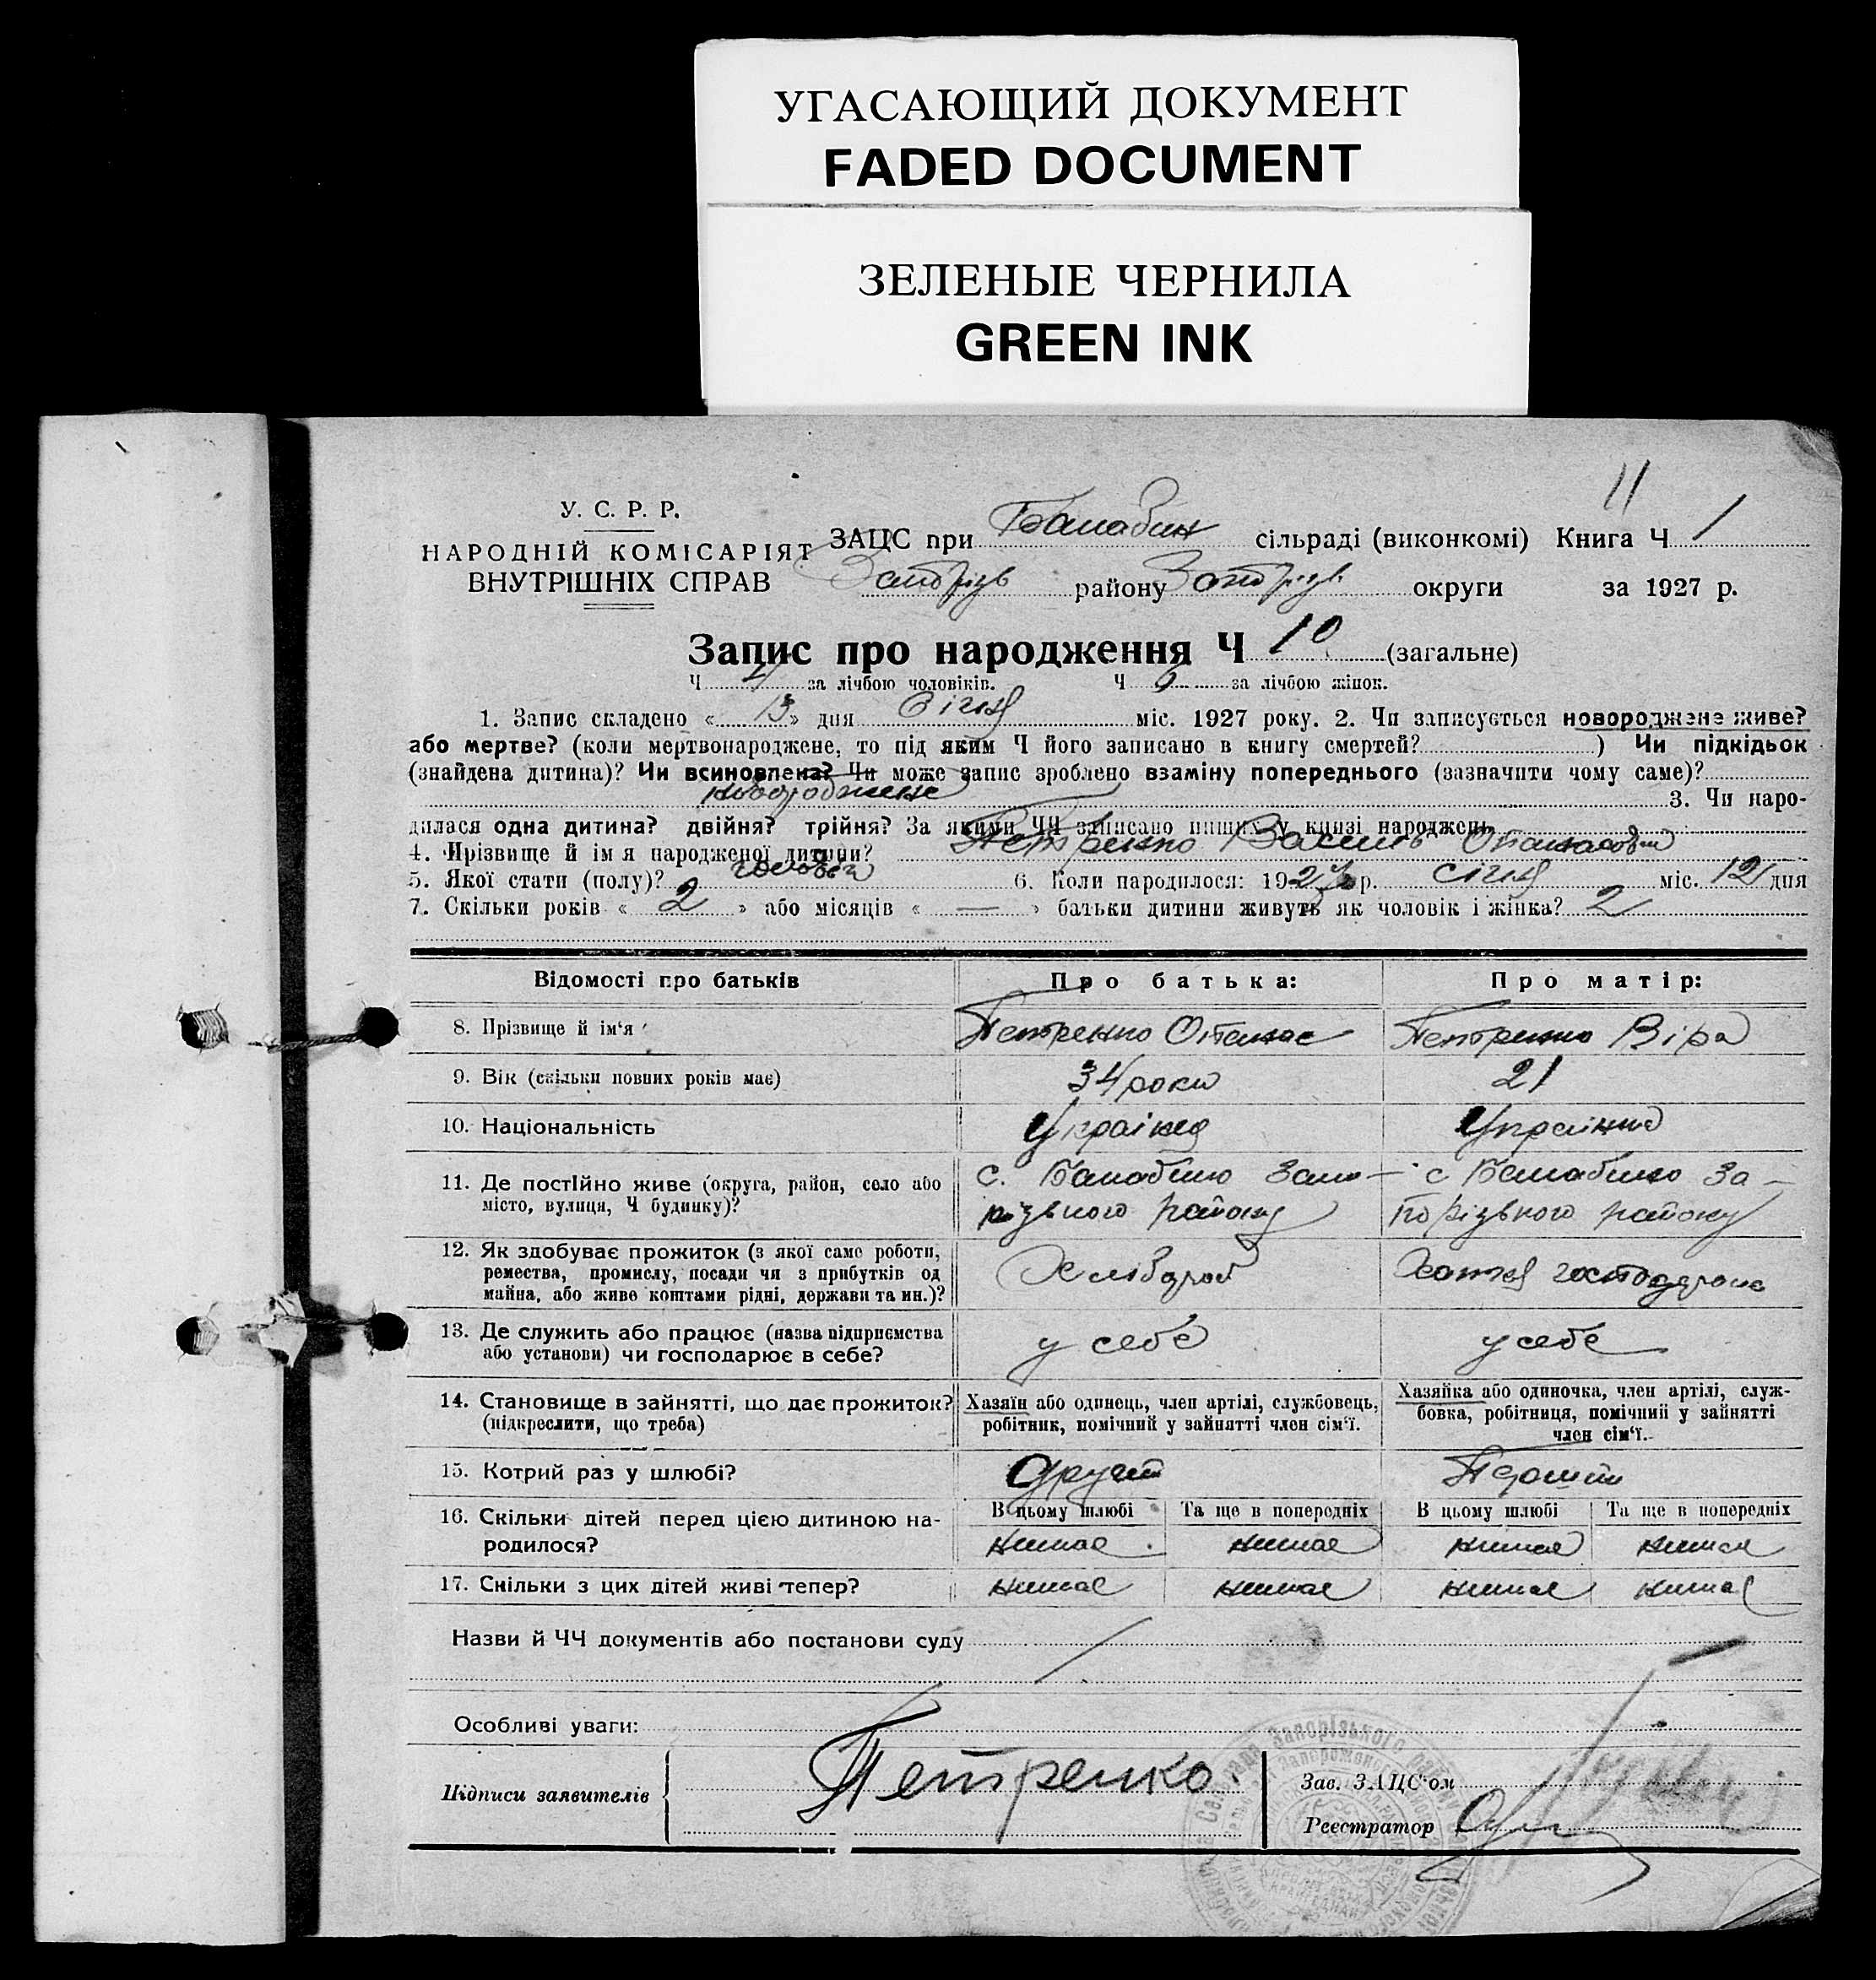 УГАСАЮЩИЙ ДОКУМЕНТ
FADED DOCUMENT
ЗЕЛЕНЫЕ ЧЕРНИЛА
GREEN INK
11
У. С. Р. Р.
НАРОДНІЙ КОМІСАРІЯТ
ВНУТРІШНІХ СПРАВ
ЗАЦС при Балабин сільраді (виконкомі) Книга Ч 1
Запоріз району Запоріз округи за 1927 р.
Запис про народження Ч 10 (загальне)
Ч 4 за лічбою чоловіків. Ч 6 за лічбою жінок.
1. Запис складено « 13 » дня Січня міс. 1927 року. 2. Чи записується новороджене живе?
або мертве? (коли мертвонароджене, то під яким Ч його записано в книгу смертей? ) Чи підкідьок
(знайдена дитина)? Чи всиновлена? Чи може запис зроблено взаміну попереднього (зазначити чому саме)?
новороджене 3. Чи наро-
дилася одна дитина? двійня? трійня? За якими ЧЧ записано инших у книзі народжень
4. Прізвище й ім я народженої дитини? Петренко Василь Опанасович
5. Якої стати (полу)? чоловічої 6. Коли народилося: 1927 р. січня міс. 12 дня
7. Скільки років « 2 » або місяців « — » батьки дитини живуть як чоловік і жінка? 2
Відомості про батьків Про батька: Про матір:
8. Прізвище й ім'я Петренко Опанас Петренко Віра
9. Вік (скільки повних років має) 34 роки 21
10. Національність Українец Українка
11. Де постійно живе (округа, район, село або місто, вулиця, Ч будинку)? с. Балабино Запо- різького району с Балабино За- порізького району
12. Як здобуває прожиток (з якої саме роботи, ремества, промислу, посади чи з прибутків од майна, або живе коштами рідні, держави та ин.)? Хлібороб Хатня господарка
13. Де служить або працює (назва підприємства або установи) чи господарює в себе? у себе у себе
14. Становище в зайнятті, що дає прожиток? (підкреслити, що треба) Хазяїн або одинець, член артілі, службовець, робітник, помічний у зайнятті член сім'ї. Хазяйка або одиночка, член артілі, служ- бовка, робітниця, помічний у зайнятті член сім'ї.
15. Котрий раз у шлюбі? Другий Перший
В цьому шлюбі Та ще в попередніх В цьому шлюбі Та ще в попередніх
16. Скільки дітей перед цією дитиною на- родилося? нимає нимає нимає нимає
17. Скільки з цих дітей живі тепер? нимає нимає нимає нимає
Назви й ЧЧ документів або постанови суду
Особливі уваги:
Підписи заявителів Петренко.
Зав. ЗАЦС'ом
Реєстратор